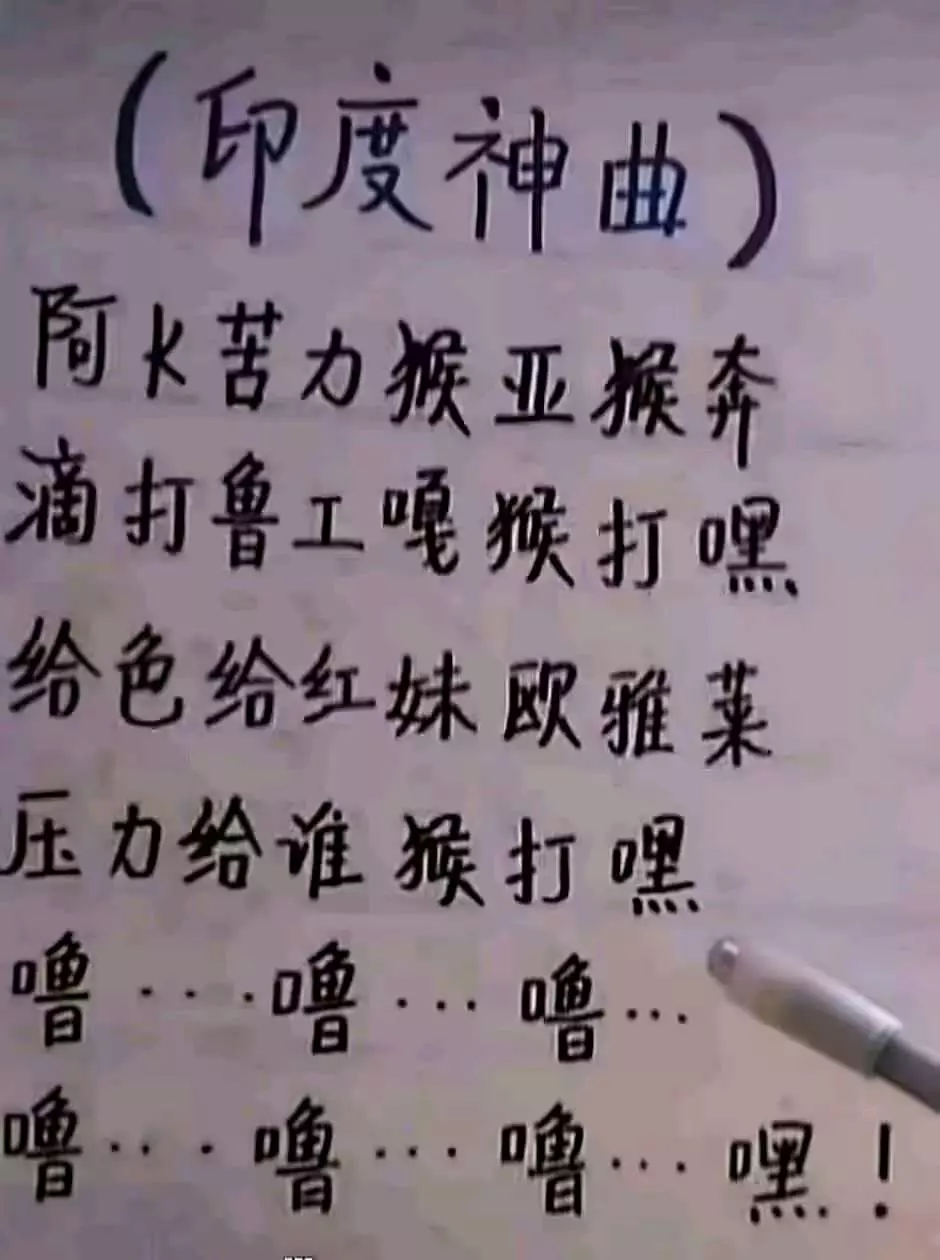 (印度神曲)
阿K苦力猴亚猴奔
滴打鲁工嘎猴打嘿
给色给红妹欧雅莱
压力给谁猴打嘿
噜···噜···噜···
噜···噜···噜···嘿！